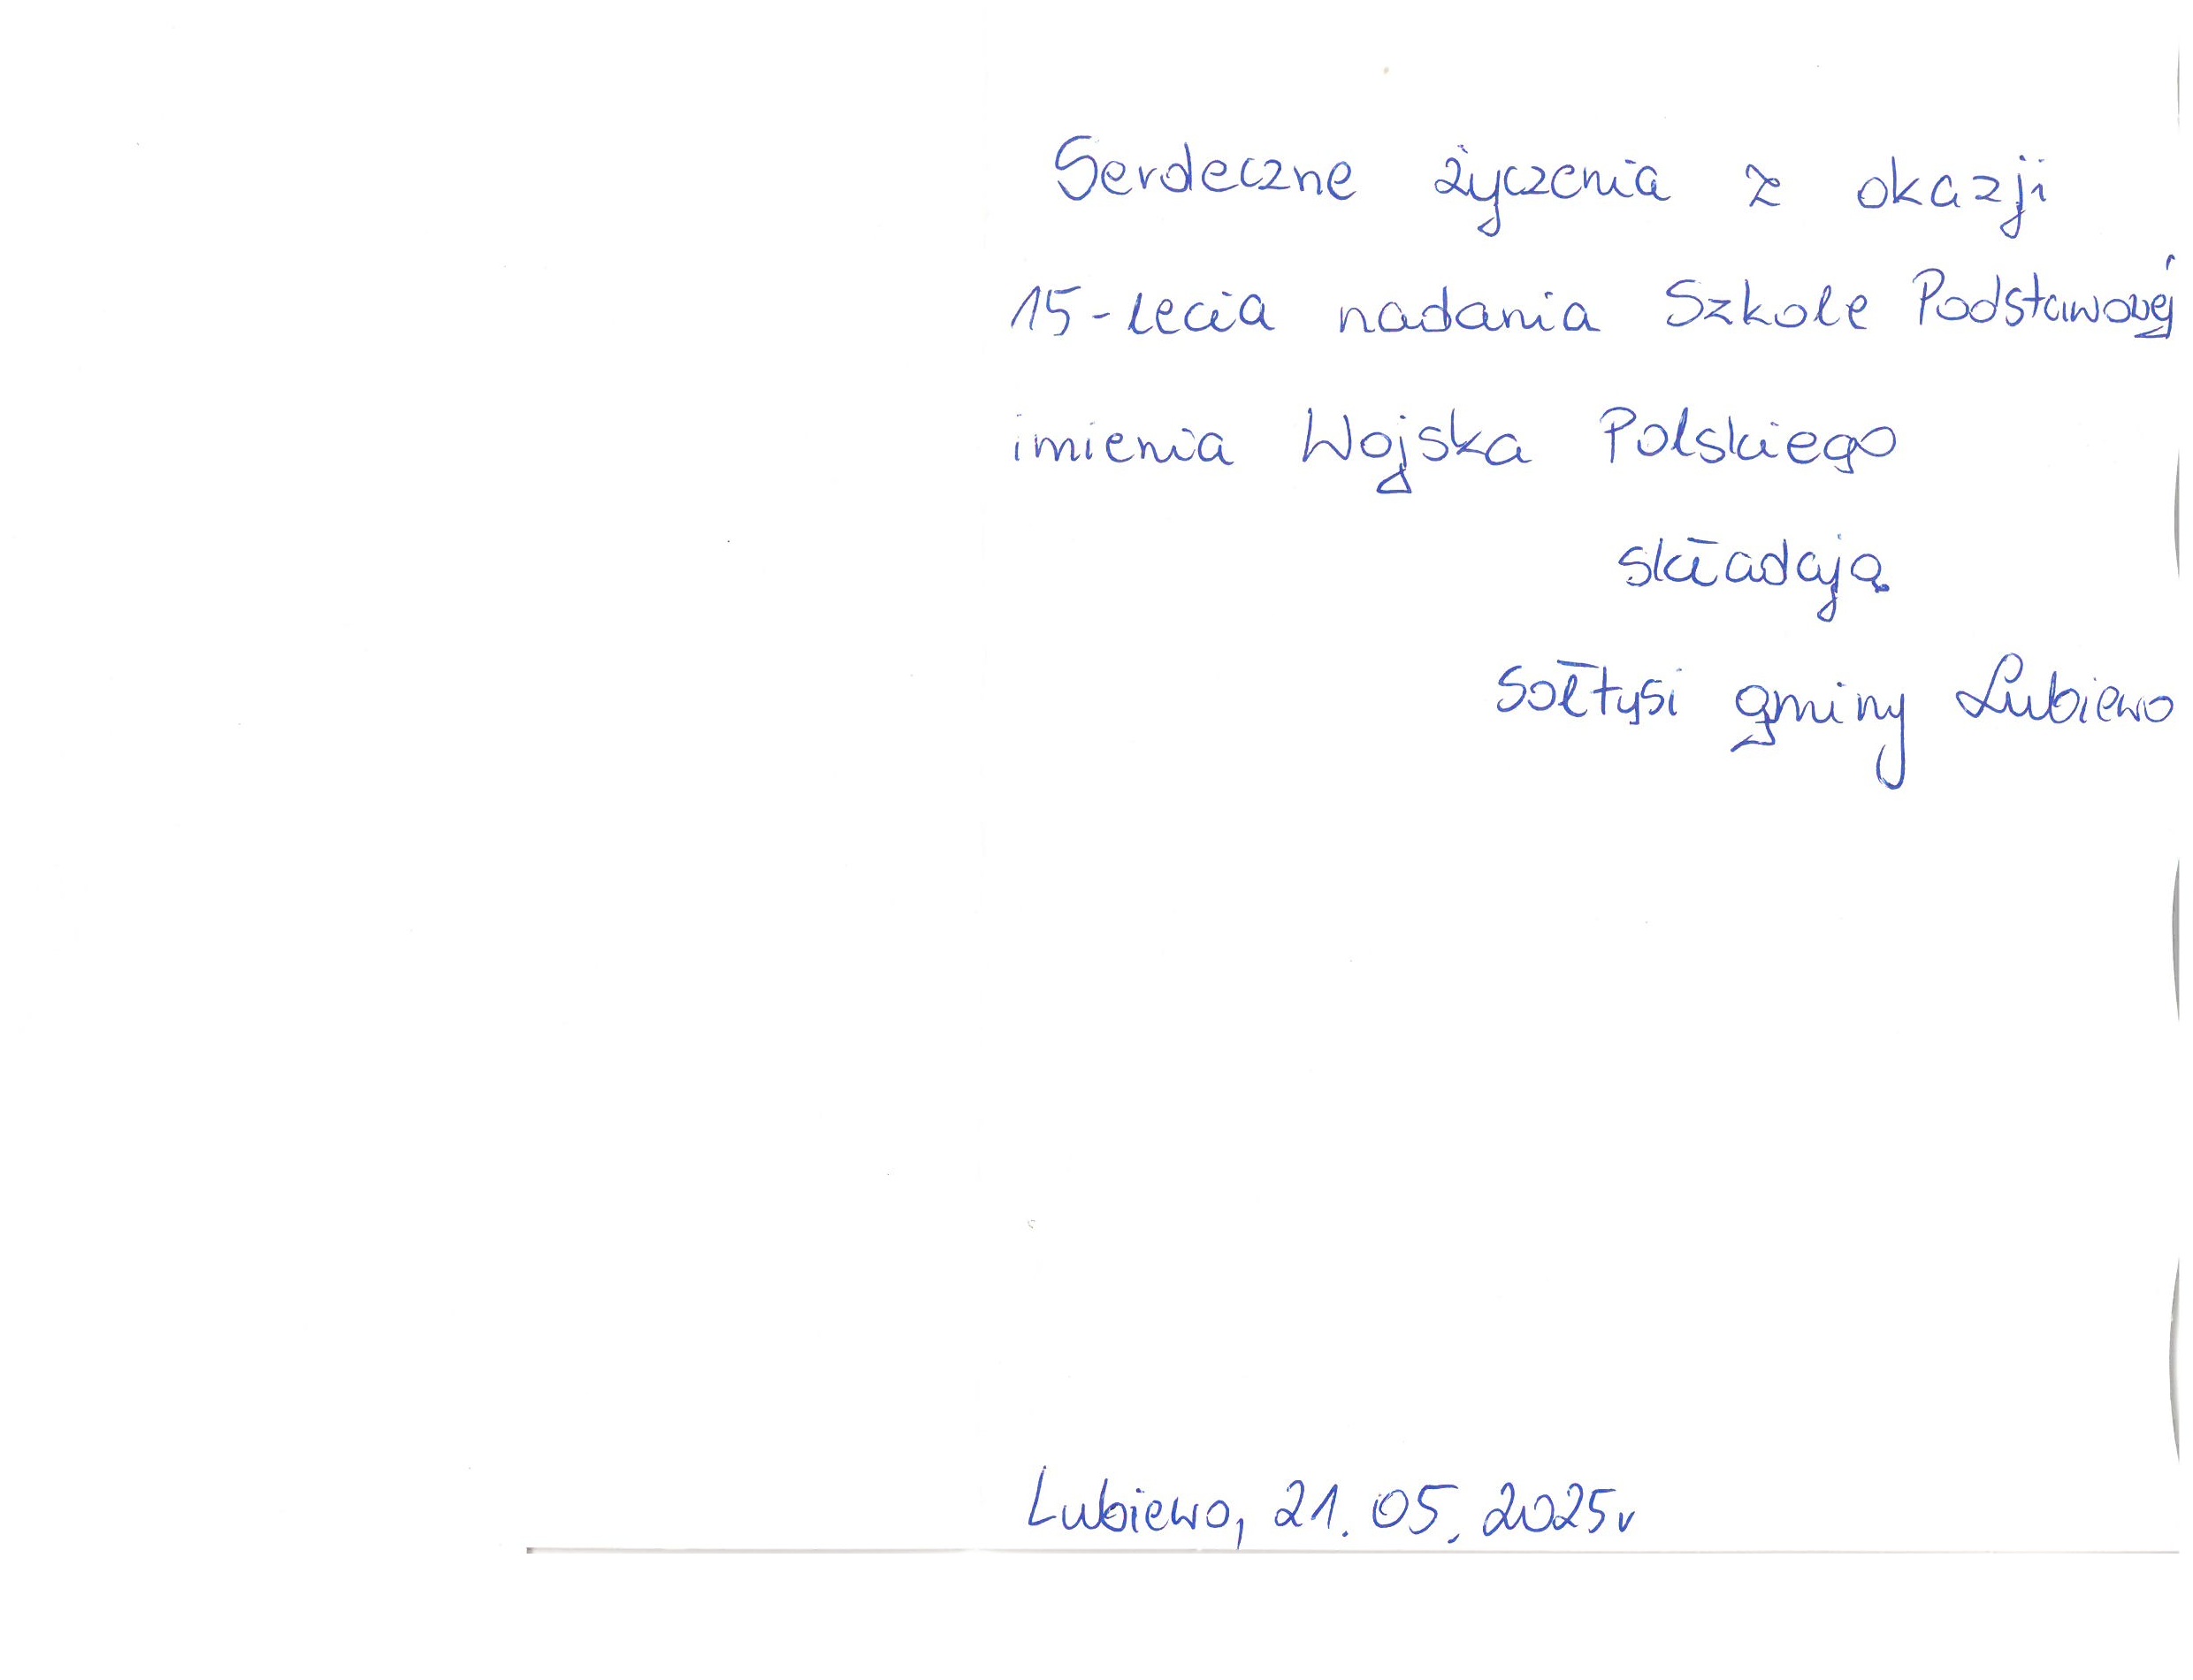 Serdeczne życzenia z okazji
15-lecia nadania Szkole Podstawowej
imienia Wojska Polskiego
składają
Sołtysi gminy Lubiewo
Lubiewo, 21.05.2025r